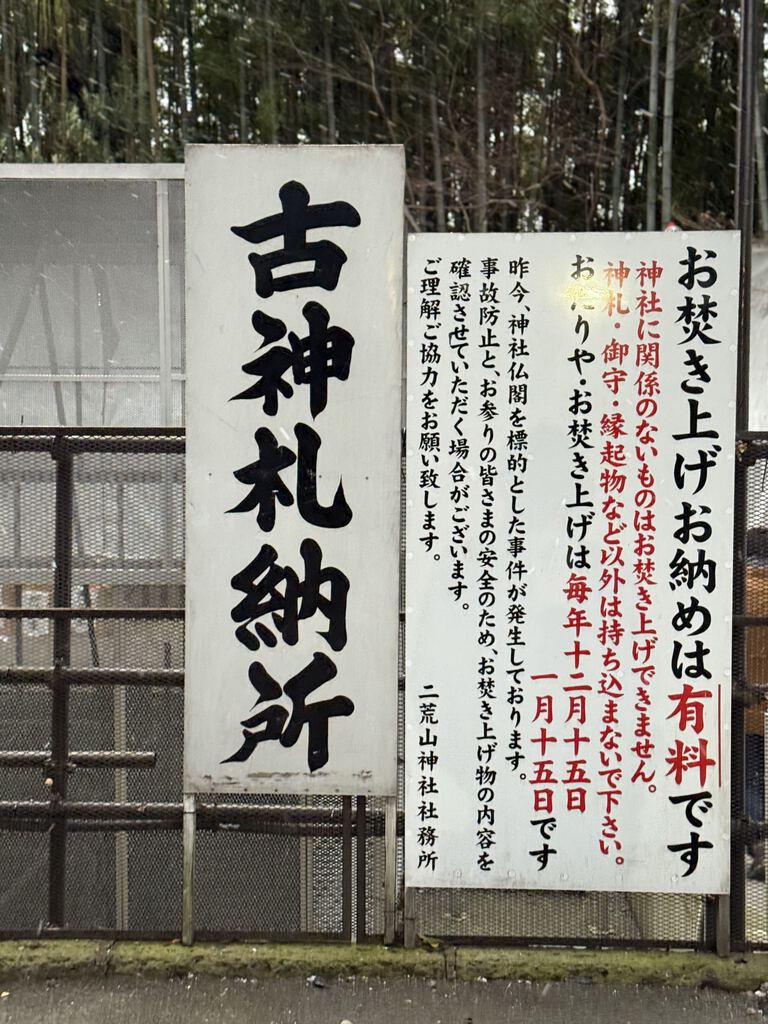 古神札納所
お焚き上げお納めは有料です
神社に関係のないものはお焚き上げできません。
神札・御守・縁起物など以外は持ち込まないで下さい。
おたりや・お焚き上げは毎年十二月十五日
一月十五日です
昨今、神社仏閣を標的とした事件が発生しております。
事故防止と、お参りの皆さまの安全のため、お焚き上げ物の内容を
確認させていただく場合がございます。
ご理解ご協力をお願い致します。
二荒山神社社務所